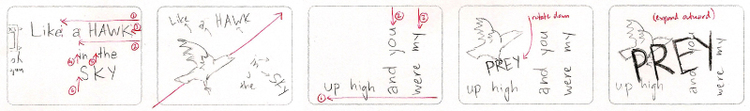 Like a HAWK
in the
SKY
Like a HAWK
in
the
SKY
up high
and you
were my
rotate down
PREY
up high
and you
were my
(expand outward)
PREY
up high
and you
were my